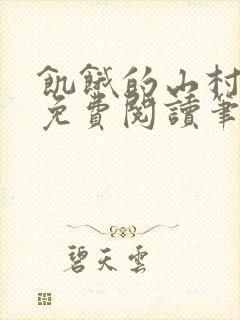 飢餓的山村
免費閱讀筆
碧天雲